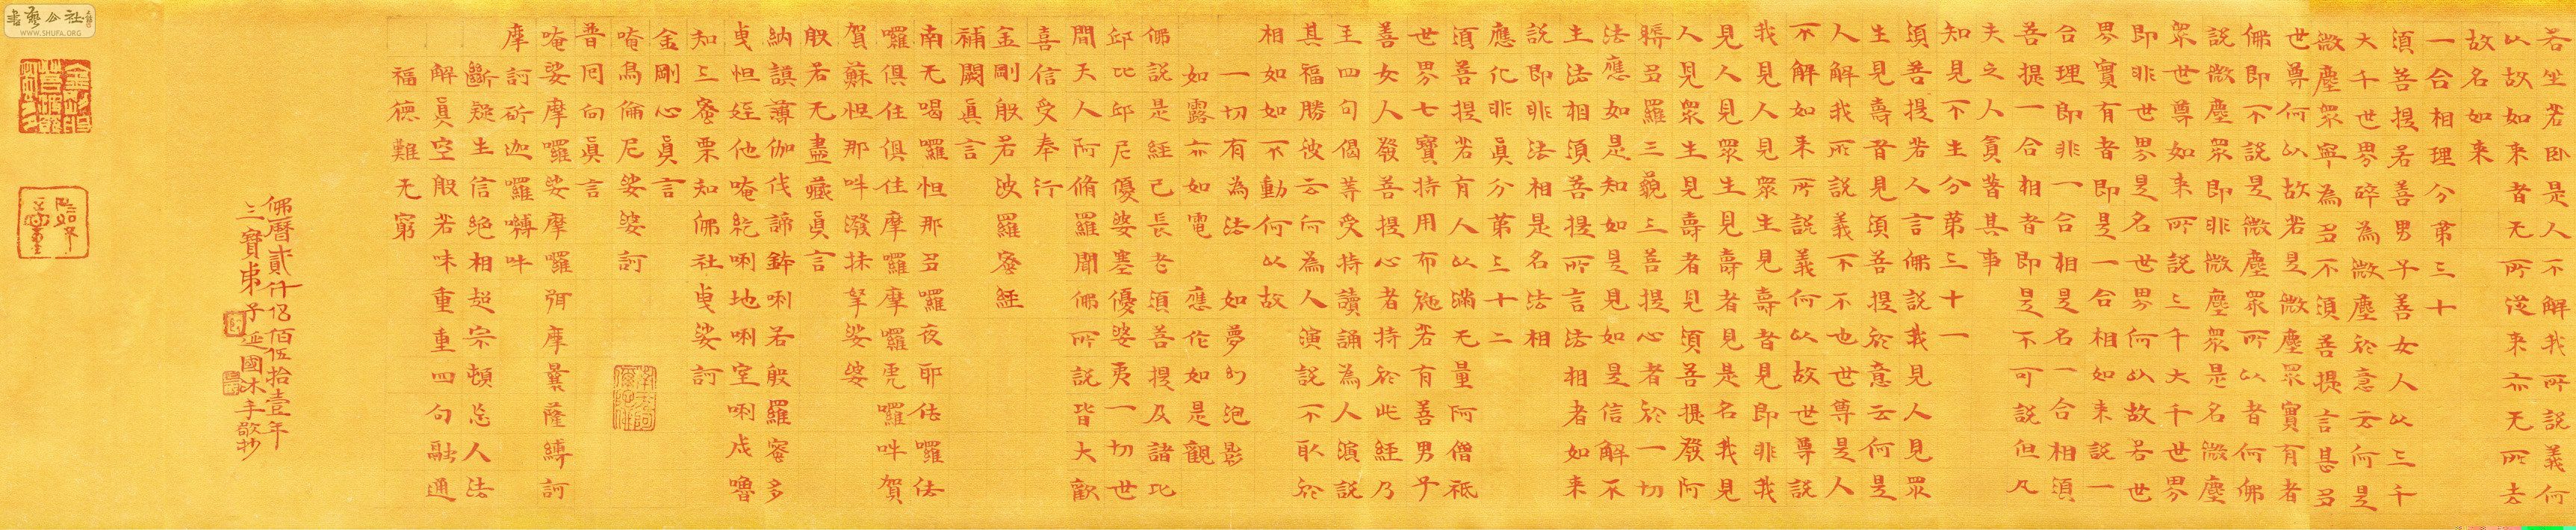 若坐若卧是人不解我所說義何
以故如来者无所從来亦无所去
故名如来
一合相理分第三十
須菩提若善男子善女人以三千
大千世界碎為微塵於意云何是
微塵眾寧為多不須菩提言甚多
世尊何以故若是微塵眾實有者
佛即不說是微塵眾所以者何佛
說微塵眾即非微塵眾是名微塵
眾世尊如来所說三千大千世界
即非世界是名世界何以故若世
界實有者即是一合相如来說一
合理即非一合相是名一合相須
菩提一合相者即是不可說但凡
夫之人貪著其事
知見不生分第三十一
須菩提若人言佛說我見人見眾
生見壽者見須菩提於意云何是
人解我所說義不不也世尊是人
不解如来所說義何以故世尊說
我見人見眾生見壽者見即非我
見人見眾生見壽者見是名我見
人見眾生見壽者見須菩提發阿
耨多羅三藐三菩提心者於一切
法應如是知如是見如是信解不
生法相須菩提所言法相者如来
說即非法相是名法相
應化非真分第三十二
須菩提若有人以滿无量阿僧祇
世界七寶持用布施若有善男子
善女人發菩提心者持於此經乃
至四句偈等受持讀誦為人演說
其福勝彼云何為人演說不取於
相如如不動何以故
一切有為法 如夢幻泡影
如露亦如電 應作如是觀
佛說是經已長老須菩提及諸比
邱比邱尼優婆塞優婆夷一切世
間天人阿脩羅聞佛所說皆大歡
喜信受奉行
金剛般若波羅蜜經
補闕真言
南无喝囉怛那多囉夜耶佉囉佉
囉俱住俱住摩囉摩囉虎囉吽賀
賀蘇怛那吽潑抹拏娑婆
般若无盡藏真言
納謨薄伽伐諦鉢唎若般羅蜜多
曳怛姪他唵紇唎地唎室唎戍嚕
知三蜜栗知佛社曳娑訶
金剛心真言
唵烏倫尼娑婆訶
普囘向真言
唵娑摩囉娑摩囉弭摩曩薩縛訶
摩訶斫迦囉嚩吽
斷疑生信絕相超宗頓忘人法
解真空般若味重重四句融通
福德難无窮
佛曆貳仟伍佰伍拾壹年
三寶弟子延國沐手敬抄
書藝公社
WWW.SHUFA.ORG